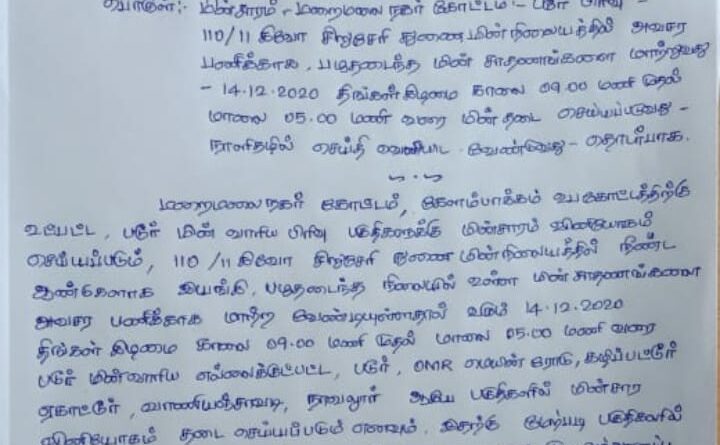 பொருள்:- மின்சாரம் - மறைமலை நகர் கோட்டம் - படூர் பிரிவு -
110/11 கிவோ சிறுசேரி துணை மின் நிலையத்தில் அவசர
பணிக்காக, பழுதடைந்த மின் சாதனங்களை மாற்றுவது
- 14.12.2020 திங்கள் கிழமை காலை 09.00 மணி முதல்
மாலை 05.00 மணி வரை மின் தடை செய்யப்படுவது -
நாளிதழில் செய்தி வெளியிட வேண்டுவது - தொடர்பாக.
மறைமலை நகர் கோட்டம், கேளம்பாக்கம் உபகோட்டத்திற்கு
உட்பட்ட, படூர் மின் வாரிய பிரிவு பகுதிகளுக்கு மின்சாரம் விநியோகம்
செய்யப்படும், 110/11 கிவோ சிறுசேரி துணை மின் நிலையத்தில் நீண்ட
ஆண்டுகளாக இயங்கி, பழுதடைந்த நிலையில் உள்ள மின் சாதனங்களை
அவசர பணிக்காக மாற்ற வேண்டியுள்ளதால் வரும் 14.12.2020
திங்கள் கிழமை காலை 09.00 மணி முதல் மாலை 05.00 மணி வரை
படூர் மின்வாரிய எல்லைக்குட்பட்ட, படூர், OMR மெயின் ரோடு, கழிப்பட்டூர்
ஏகாட்டூர், வாணியஞ்சாவடி, நாவலூர் ஆகிய பகுதிகளில் மின்சார
விநியோகம் தடை செய்யப்படும் எனவும், இதற்கு மேற்படி பகுதிகளில்